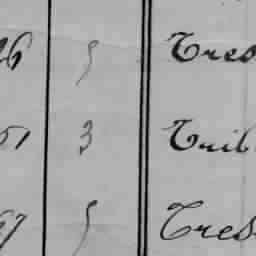 26 5 Tres
51 3 Trib
67 5 Tres